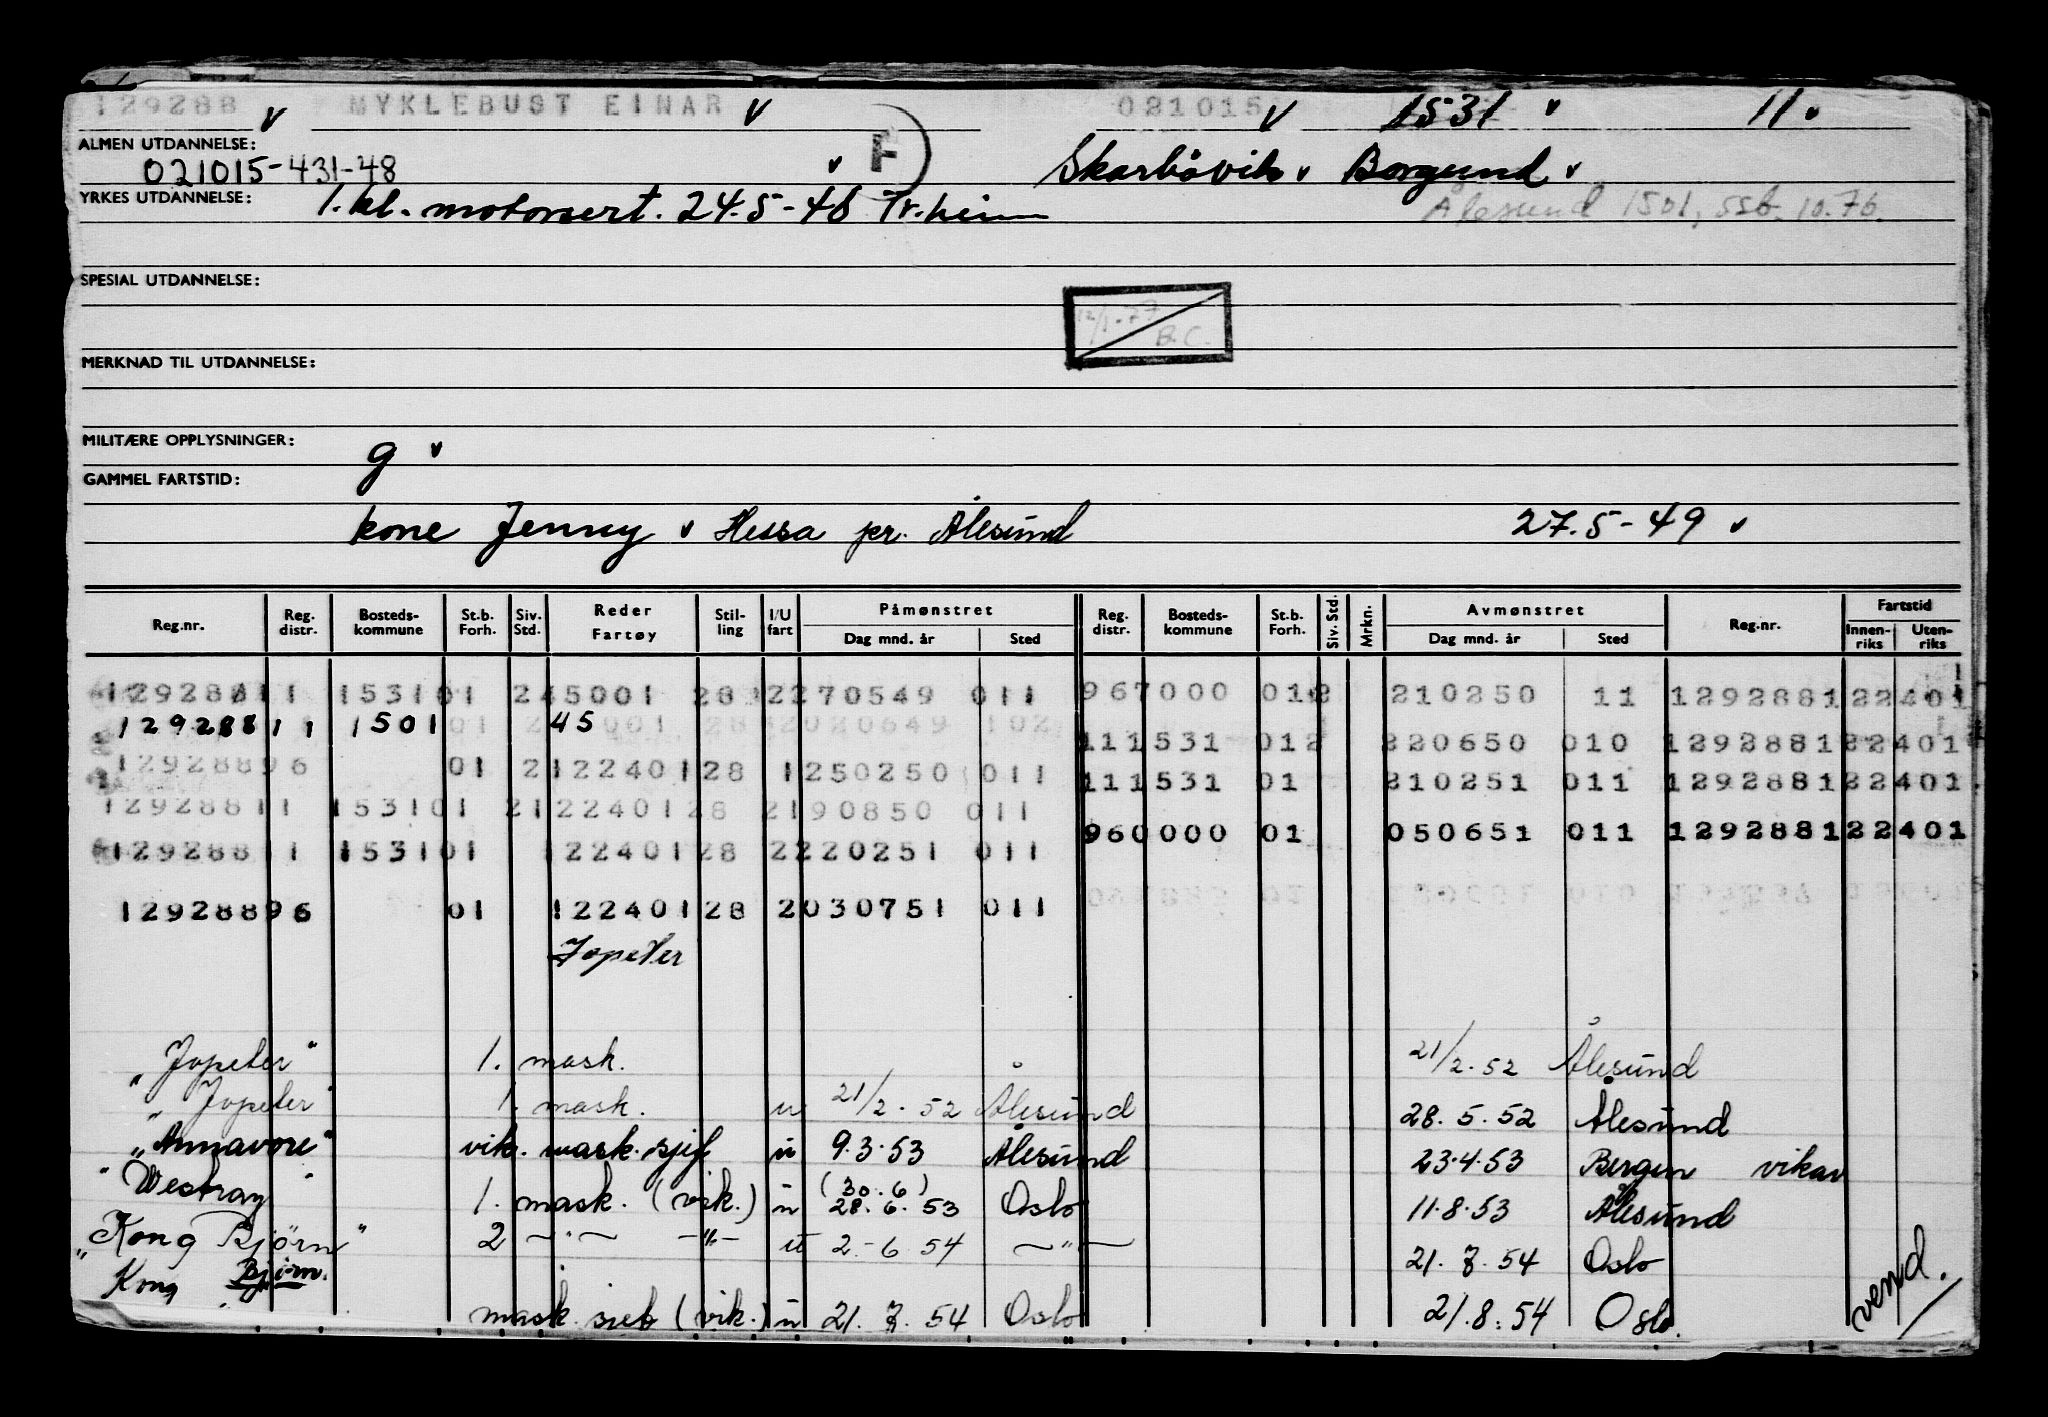 129288 MYKLEBUST EINAR 021015 1531 11
ALMEN UTDANNELSE:
021015-431-48 F Skarbövik Borgund
YRKES UTDANNELSE: 1. kl. motorsert. 24.5-46 Tr.heim Ålesund 1501, ssb. 10.76.
SPESIAL UTDANNELSE:
12/1-77
B.C.
MERKNAD TIL UTDANNELSE:
MILITÆRE OPPLYSNINGER:
g
GAMMEL FARTSTID:
kone Jenny Hessa pr. Ålesund 27.5-49
Reg.nr. Reg. distr. Bosteds-kommune St.b. Forh. Siv. Std. Reder Fartøy Stil-ling I/U fart Påmønstret Dag mnd. år Sted Reg. distr. Bosteds-kommune St.b. Forh. Siv. Std. Mrkn. Avmønstret Dag mnd. år Sted Reg.nr. Fartstid Innen-riks Uten-riks
129288 11 1531 01 2 45001 28 2 270549 011 967000 01 210250 11 129288122401
129288 11 1501 01 45001 28 2 020649 102
111531 012 220650 010 129288122401
129288 96 01 2 122401 28 1 250250 011 111531 01 210251 011 129288122401
129288 11 1531 01 2 122401 28 2 190850 011
960000 01 050651 011 129288122401
129288 11 1531 01 122401 28 2 220251 011
129288 96 01 122401 28 2 030751 011
Jopeter
"Jopeter" 1. mask. 21/2.52 Ålesund
"Jopeter" 1. mask. u 21/2.52 Ålesund 28.5.52 Ålesund
"Annavore" vik. mask.sjef u 9.3.53 Ålesund 23.4.53 Bergen vikar
"Westray" 1. mask. (vik.) u (30.6) 28.6.53 Oslo 11.8.53 Ålesund
"Kong Bjørn" 2 —"— —"— u 2.-6.54 —"— 21.7.54 Oslo
Kong Bjørn. mask. (vik.) u 21.7.54 Oslo 21.8.54 Oslo.
vend.